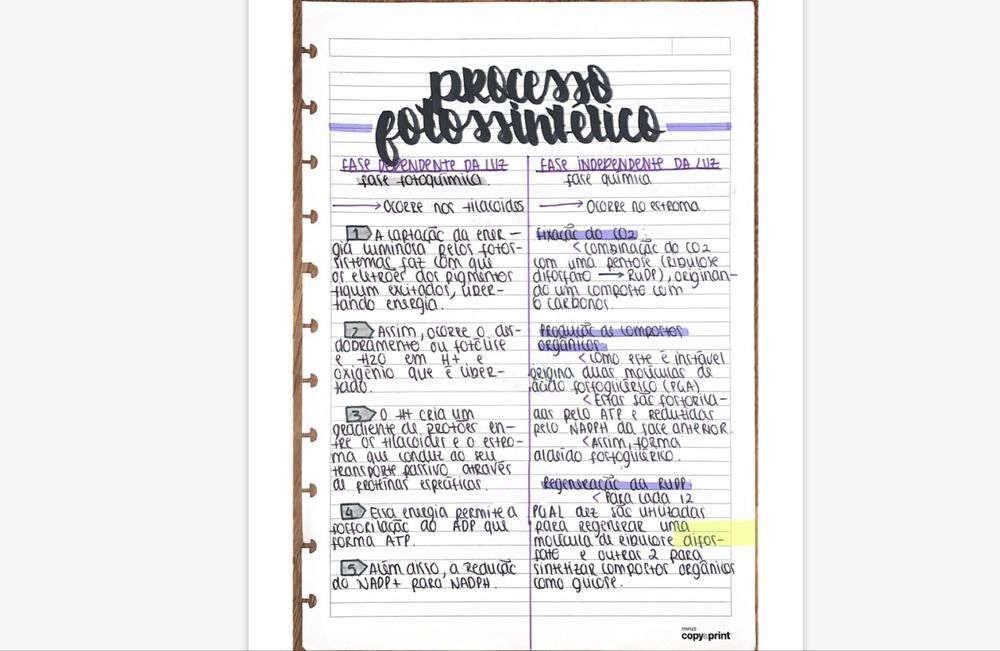 processo
fotossintético
FASE DEPENDENTE DA LUZ
fase fotoquímica.
→ Ocorre nos tilacoides
1 A captação da ener-
gia luminosa pelos fotos-
sistemas faz com que
os eletrões dos pigmentos
fiquem excitados, liber-
tando energia.
2 Assim, ocorre o des-
dobramento ou fotólise
e H2O em H+ e
oxigénio que é liber-
tado.
3 O H+ cria um
gradiente de protões en-
tre os tilacoides e o estro-
ma que conduz ao seu
transporte passivo através
de proteínas específicas.
4 Essa energia permite a
fosforilação do ADP que
forma ATP.
5 Além disso, a redução
do NADP+ para NADPH.
FASE INDEPENDENTE DA LUZ
fase química
→ Ocorre no estroma.
Fixação do CO2:
< Combinação do CO2
com uma pentose (Ribulose
difosfato → RuDP), originan-
do um composto com
6 carbonos.
Produção de compostos
orgânicos
< Como este é instável
origina duas moléculas de
ácido fosfoglicérico (PGA)
< Estas são fosforila-
das pelo ATP e reduzidas
pelo NADPH da fase anterior.
< Assim, forma
aldeído fosfoglicérico.
Regeneração da RuDP
< Para cada 12
PGAL dez são utilizadas
para regenerar uma
molécula de ribulose difos-
fato e outras 2 para
sintetizar compostos orgânicos
como glicose.
STAPLES
copy&print